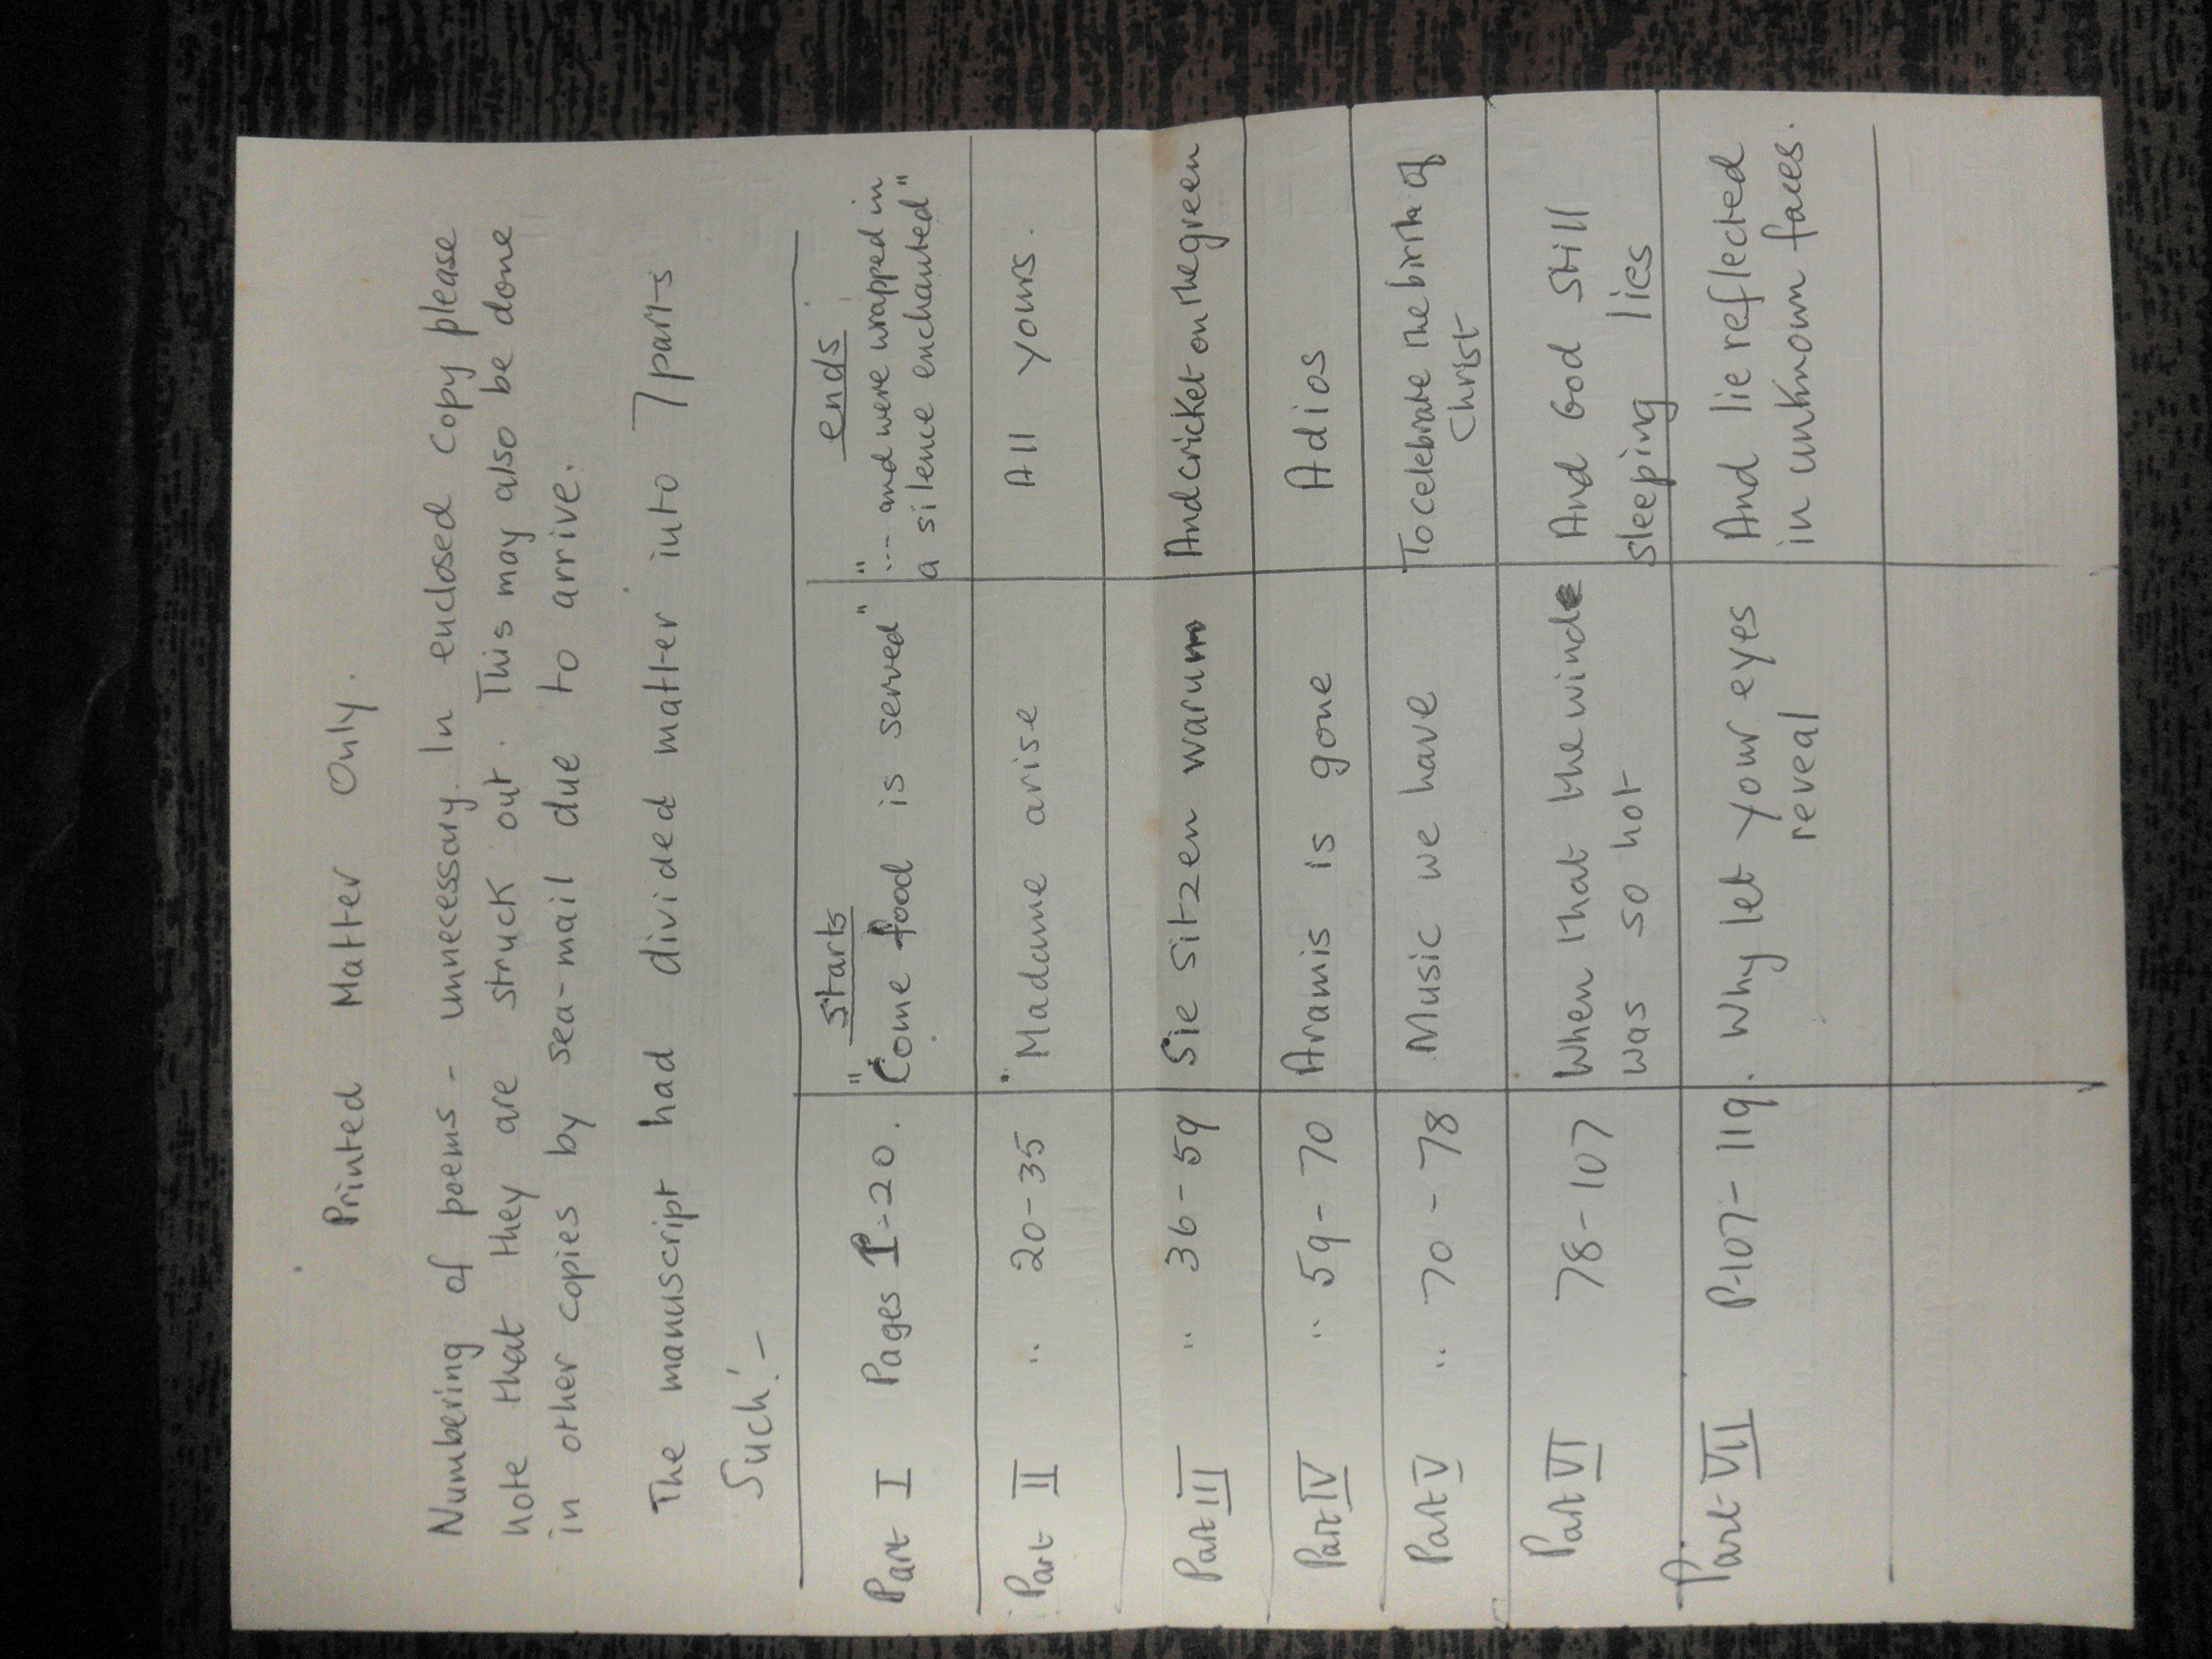 Printed Matter Only.
Numbering of poems - unnecessary. In enclosed copy please
note that they are struck out. This may also be done
in other copies by sea-mail due to arrive.
The manuscript had divided matter into 7 parts
Such:-
starts ends
Part I Pages 1-20. "Come food is served" "... and were wrapped in
a silence enchanted"
Part II " 20-35 "Madame arise All yours.
Part III " 36-59 Sie sitzen warum And cricket on the green
Part IV " 59-70 Aramis is gone Adios
Part V " 70-78 Music we have To celebrate the birth of
Christ
Part VI 78-107 When that the wind And God still
was so hot sleeping lies
Part VII P.107-119. Why let your eyes And lie reflected
reveal in unknown faces.